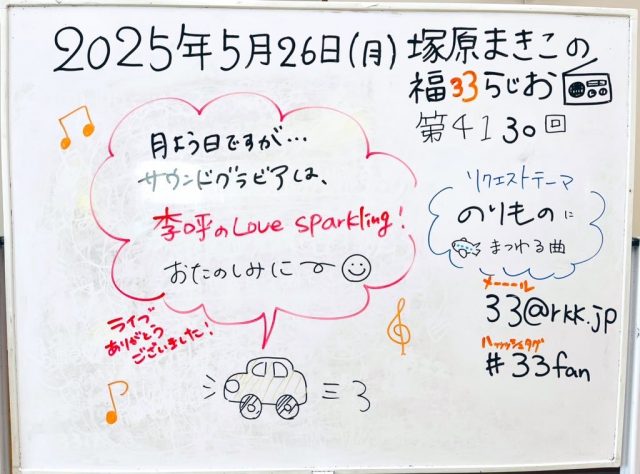 2025年5月26日(月) 塚原まきこの
福33らじお
第4130回
月よう日ですが…
サウンドグラビアは、
李呼のLove sparkling!
おたのしみに
ライブ
ありがとう
ございました!
リクエストテーマ
のりものに
まつわる曲
メーール
33@rkk.jp
ハッシュタグ
#33fan